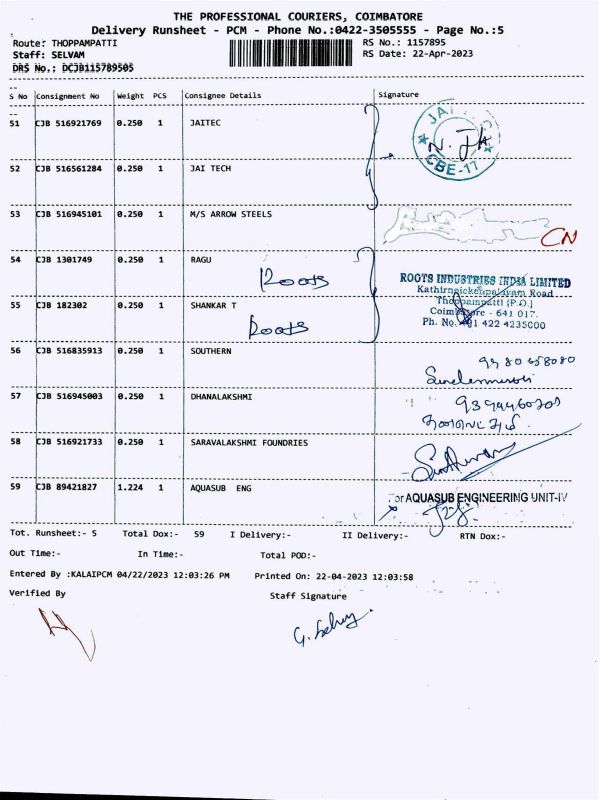 THE PROFESSIONAL COURIERS, COIMBATORE
Delivery Runsheet - PCM - Phone No.:0422-3505555 - Page No.:5
Route: THOPPAMPATTI RS No.: 1157895
Staff: SELVAM RS Date: 22-Apr-2023
DRS No.: DCJB115789505
S No Consignment No Weight PCS Consignee Details Signature
51 CJB 516921769 0.250 1 JAITEC
JAI
CBE-17
52 CJB 516561284 0.250 1 JAI TECH
53 CJB 516945101 0.250 1 M/S ARROW STEELS
CN
54 CJB 1301749 0.250 1 RAGU
Roots
ROOTS INDUSTRIES INDIA LIMITED
Kathirnaickenpalayam Road
Thoppampatti (P.O.)
Coimbatore - 641 017.
Ph. No. +91 422 4235000
55 CJB 182302 0.250 1 SHANKAR T
Roots
56 CJB 516835913 0.250 1 SOUTHERN
57 CJB 516945003 0.250 1 DHANALAKSHMI
58 CJB 516921733 0.250 1 SARAVALAKSHMI FOUNDRIES
59 CJB 89421827 1.224 1 AQUASUB ENG
For AQUASUB ENGINEERING UNIT-IV
Tot. Runsheet:- 5 Total Dox:- 59 I Delivery:- II Delivery:- RTN Dox:-
Out Time:- In Time:- Total POD:-
Entered By :KALAIPCM 04/22/2023 12:03:26 PM Printed On: 22-04-2023 12:03:58
Verified By Staff Signature